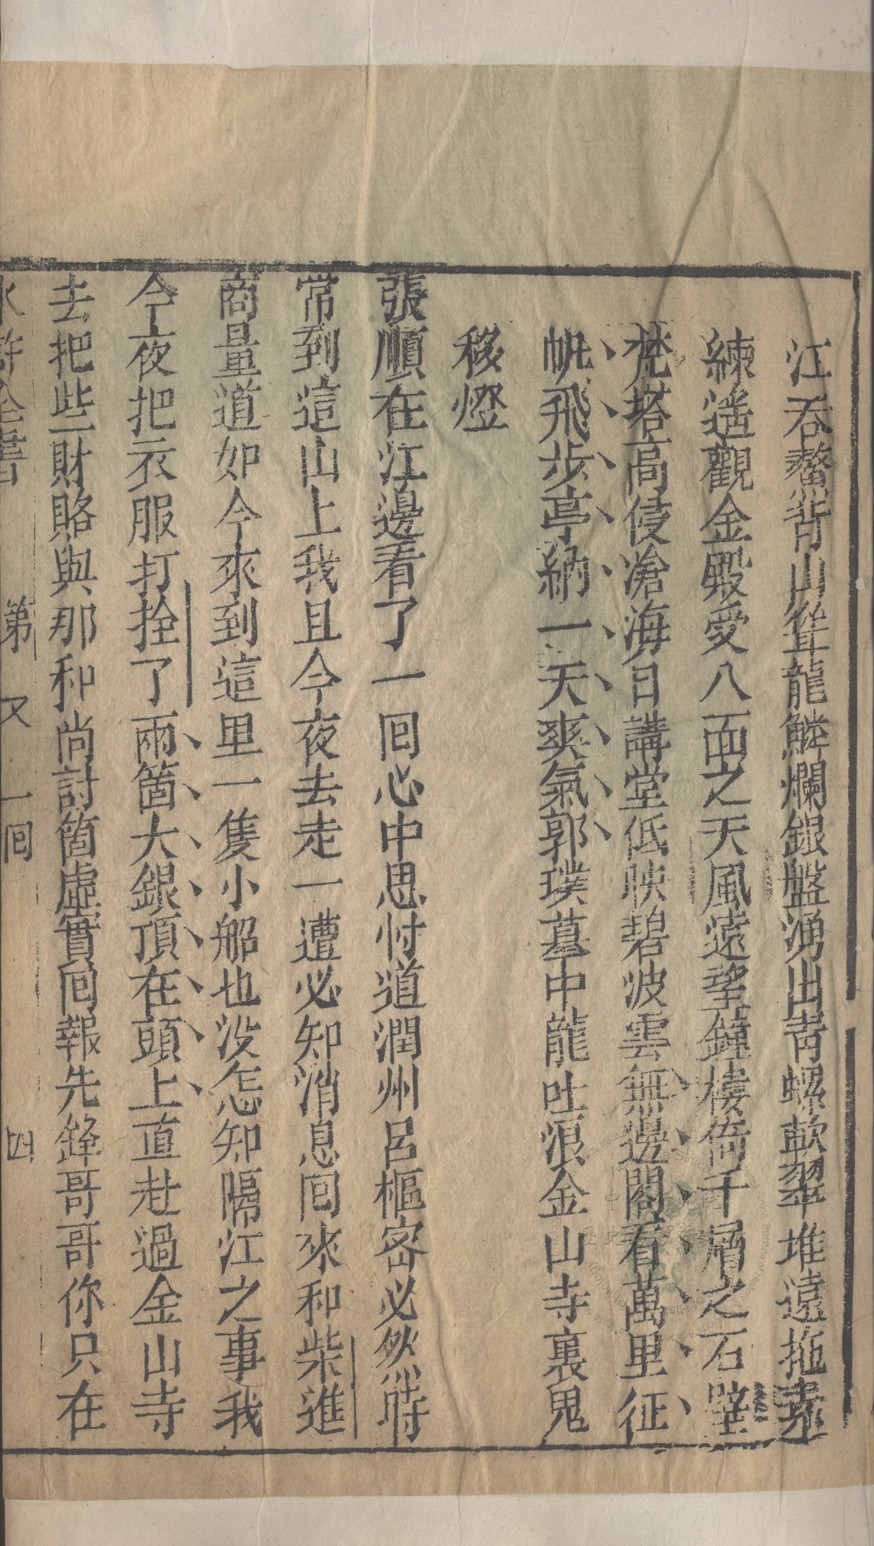 江吞鰲背山聳龍鱗爛銀盤湧出青螺軟翠堆遠拖素
練遥觀金殿受八面之天風遠望鐘樓倚千層之石壁
梵塔高侵滄海日講堂低映碧波雲無邊閣看萬里征
帆飛步亭納一天爽氣郭璞墓中龍吐浪金山寺裏鬼
移燈
張順在江邊看了一囘心中思忖道潤州呂樞密必然時
常到這山上我且今夜去走一遭必知消息囘來和柴進
商量道如今來到這里一隻小船也没怎知隔江之事我
今夜把衣服打拴了兩箇大銀頂在頭上直赴過金山寺
去把些財賂與那和尚討箇虛實囘報先鋒哥哥你只在
水滸全書 第 又 一囘 四